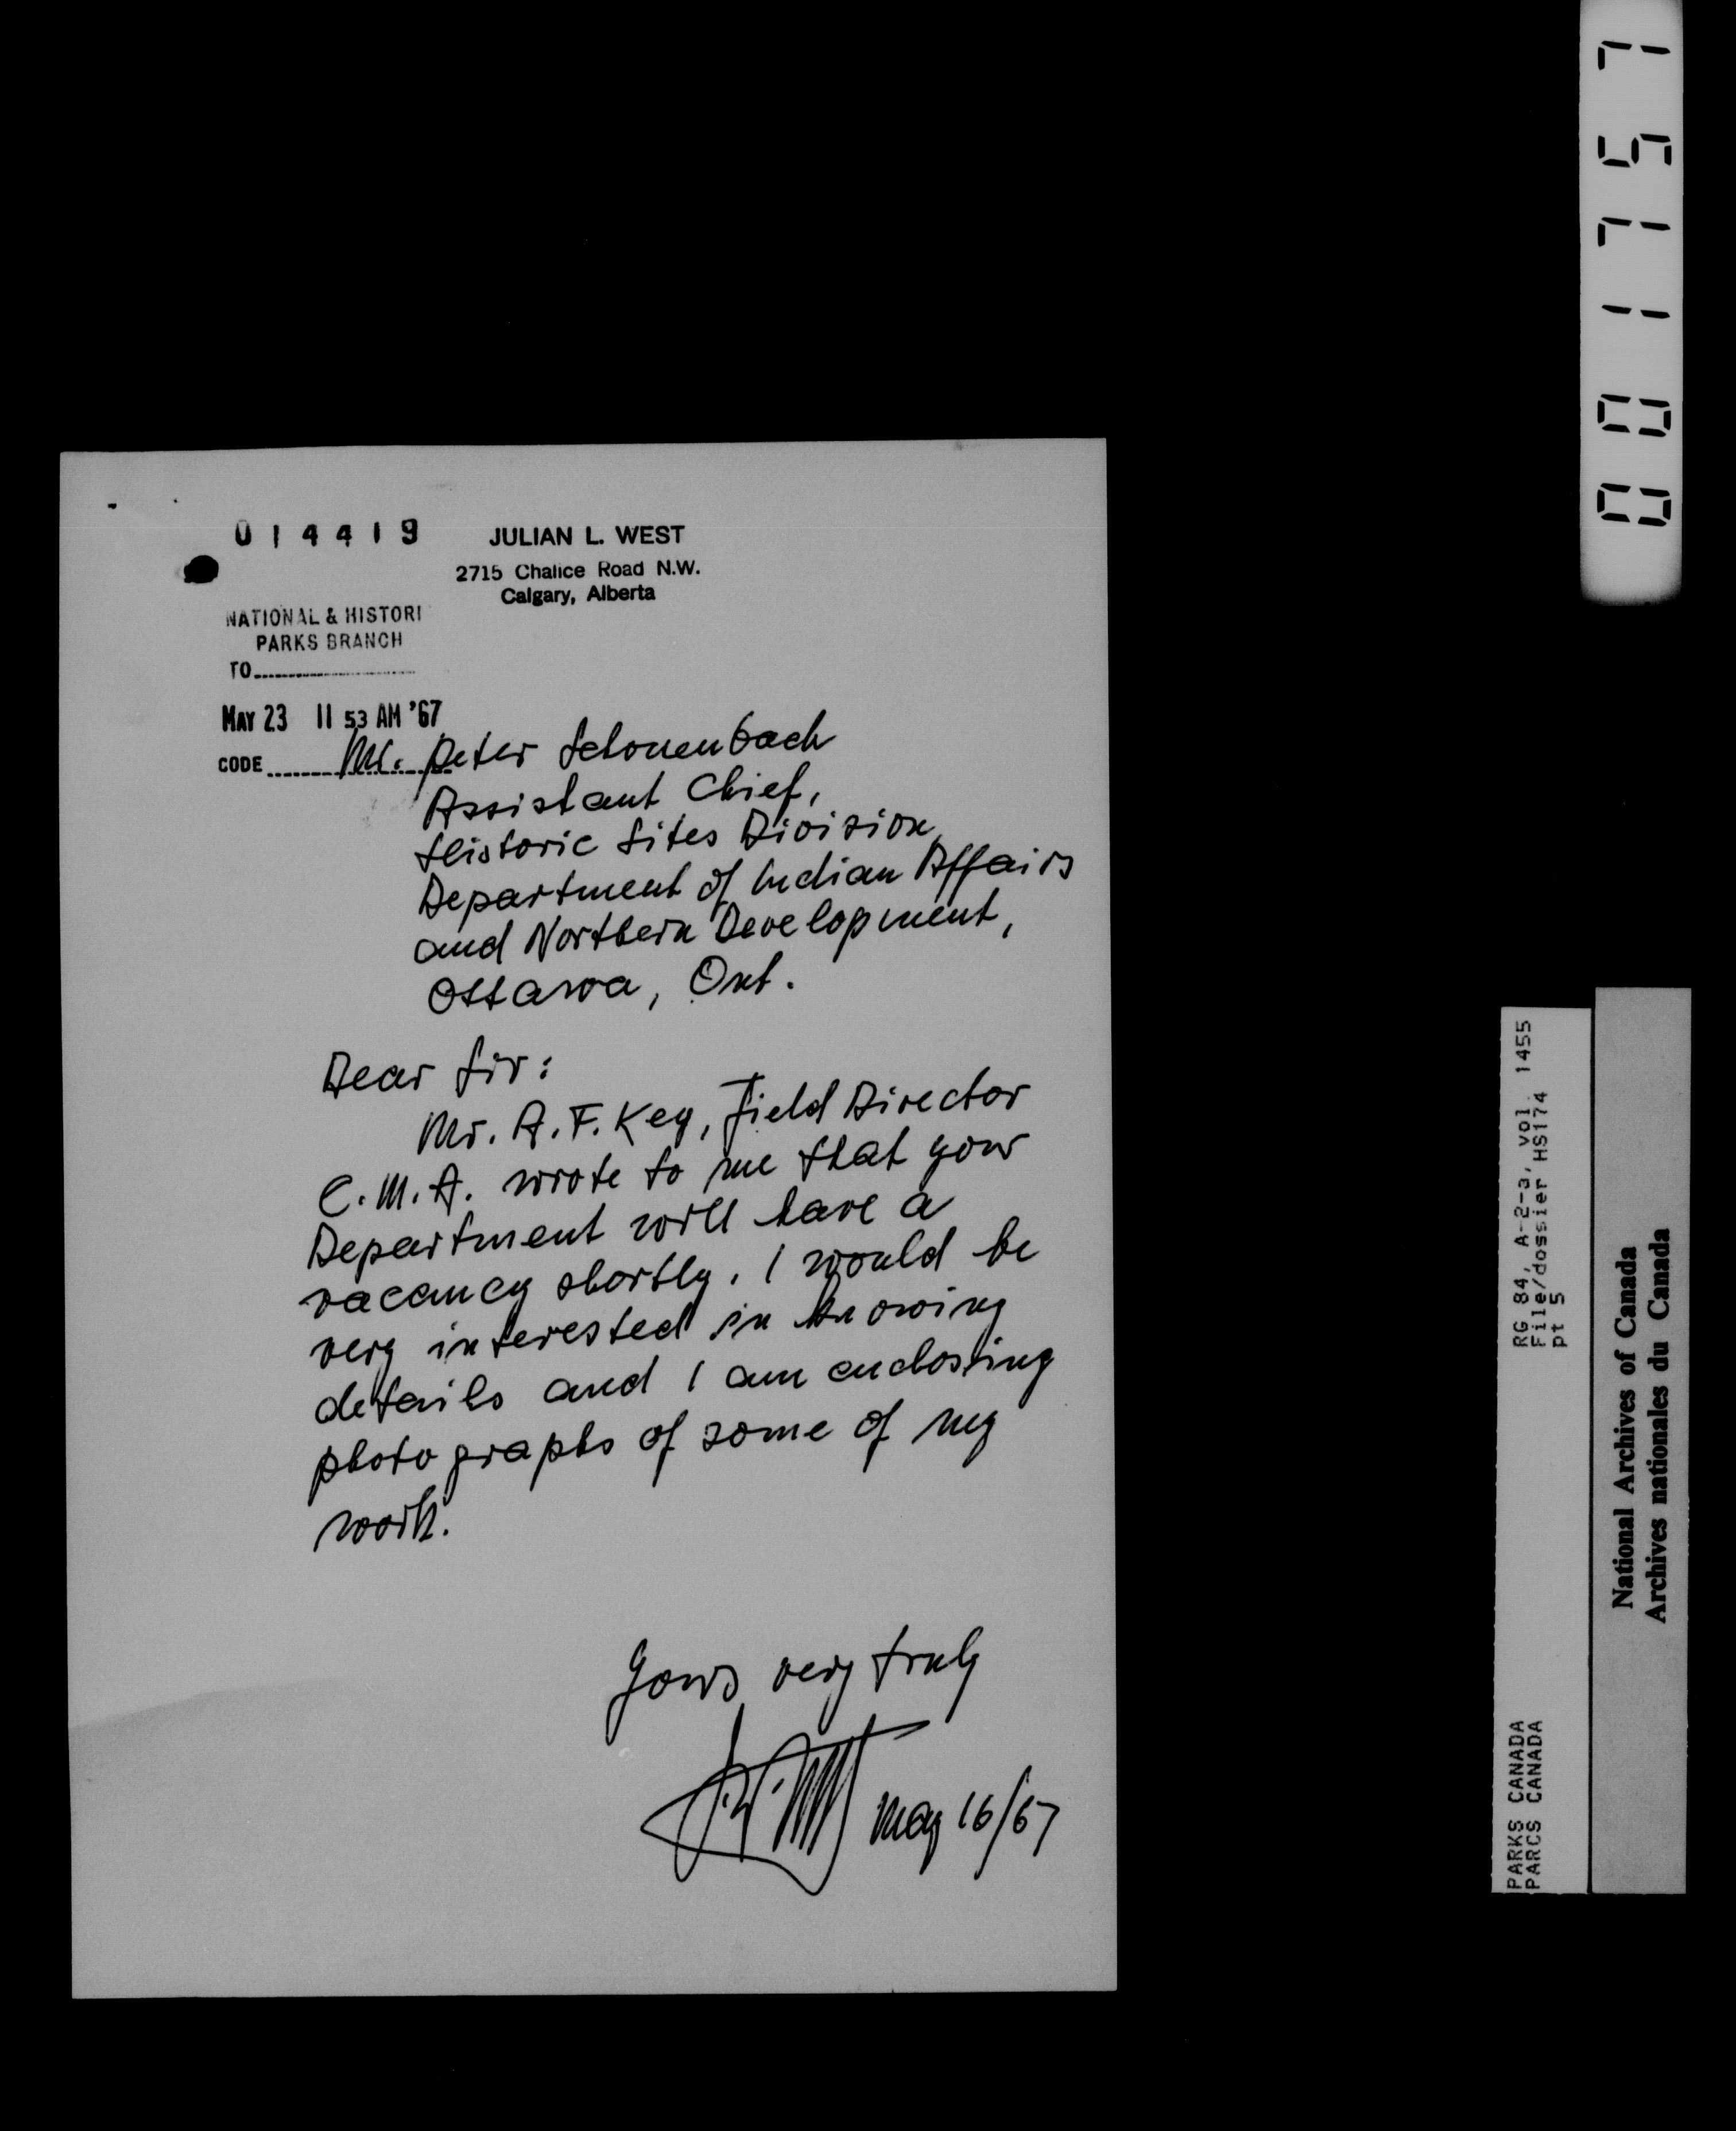 014419
JULIAN L. WEST
2715 Chalice Road N.W.
Calgary, Alberta
NATIONAL & HISTORI
PARKS BRANCH
TO
MAY 23 11 53 AM '67
CODE
Mr. Peter Schonenbach
Assistant Chief,
Historic Sites Division,
Department of Indian Affairs
and Northern Development,
Ottawa, Ont.
Dear Sir:
Mr. A. F. Key, Field Director
C.M.A. wrote to me that your
Department will have a
vacancy shortly. I would be
very interested in knowing
details and I am enclosing
photographs of some of my
work.
Yours very truly
May 16/67
001757
RG 84, A-2-a, vol. 1455
File/dossier HS174
pt 5
PARKS CANADA
PARCS CANADA
National Archives of Canada
Archives nationales du Canada